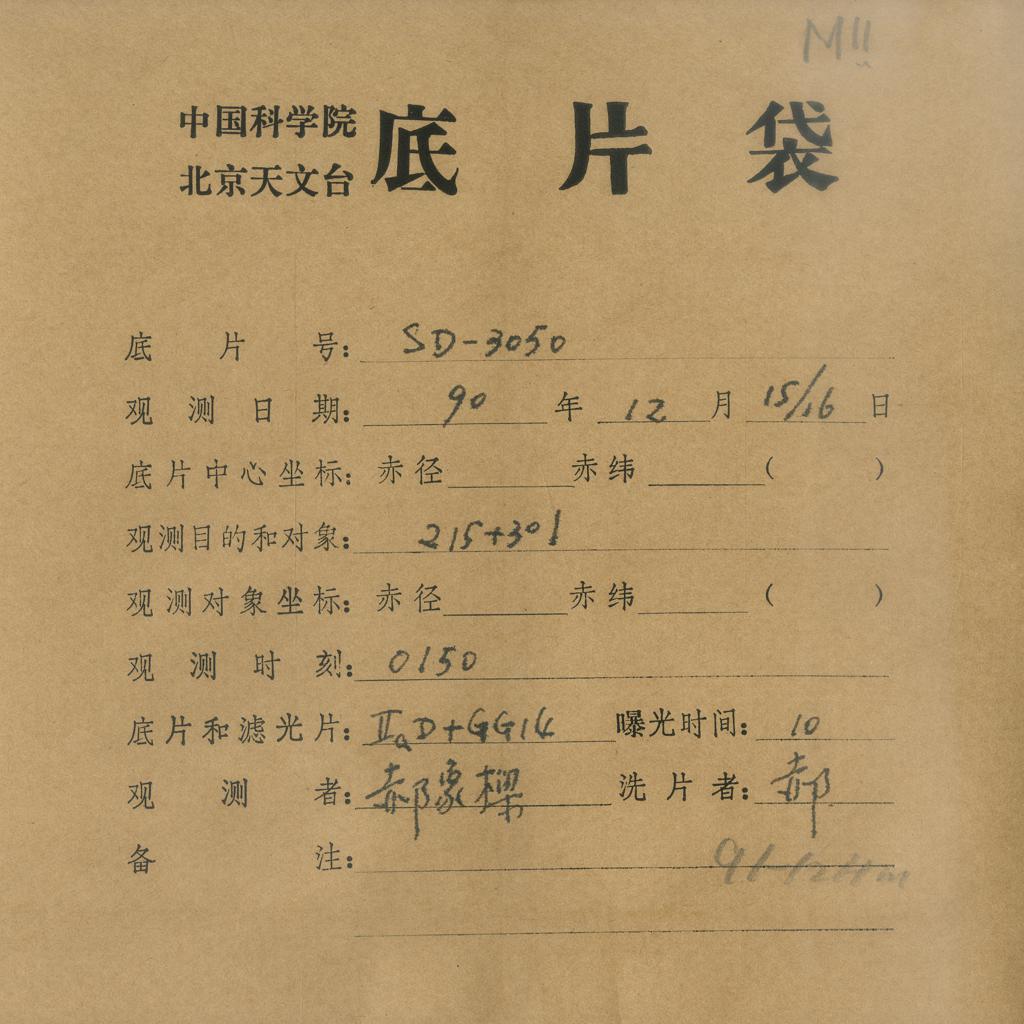 M11
中国科学院
北京天文台
底片袋
底片号: SD-3050
观测日期: 90 年 12 月 15/16 日
底片中心坐标: 赤径 赤纬 ( )
观测目的和对象: 215+301
观测对象坐标: 赤径 赤纬 ( )
观测时刻: 0150
底片和滤光片: IIaD+GG14 曝光时间: 10
观测者: 郝象樑 洗片者: 郝
备注: